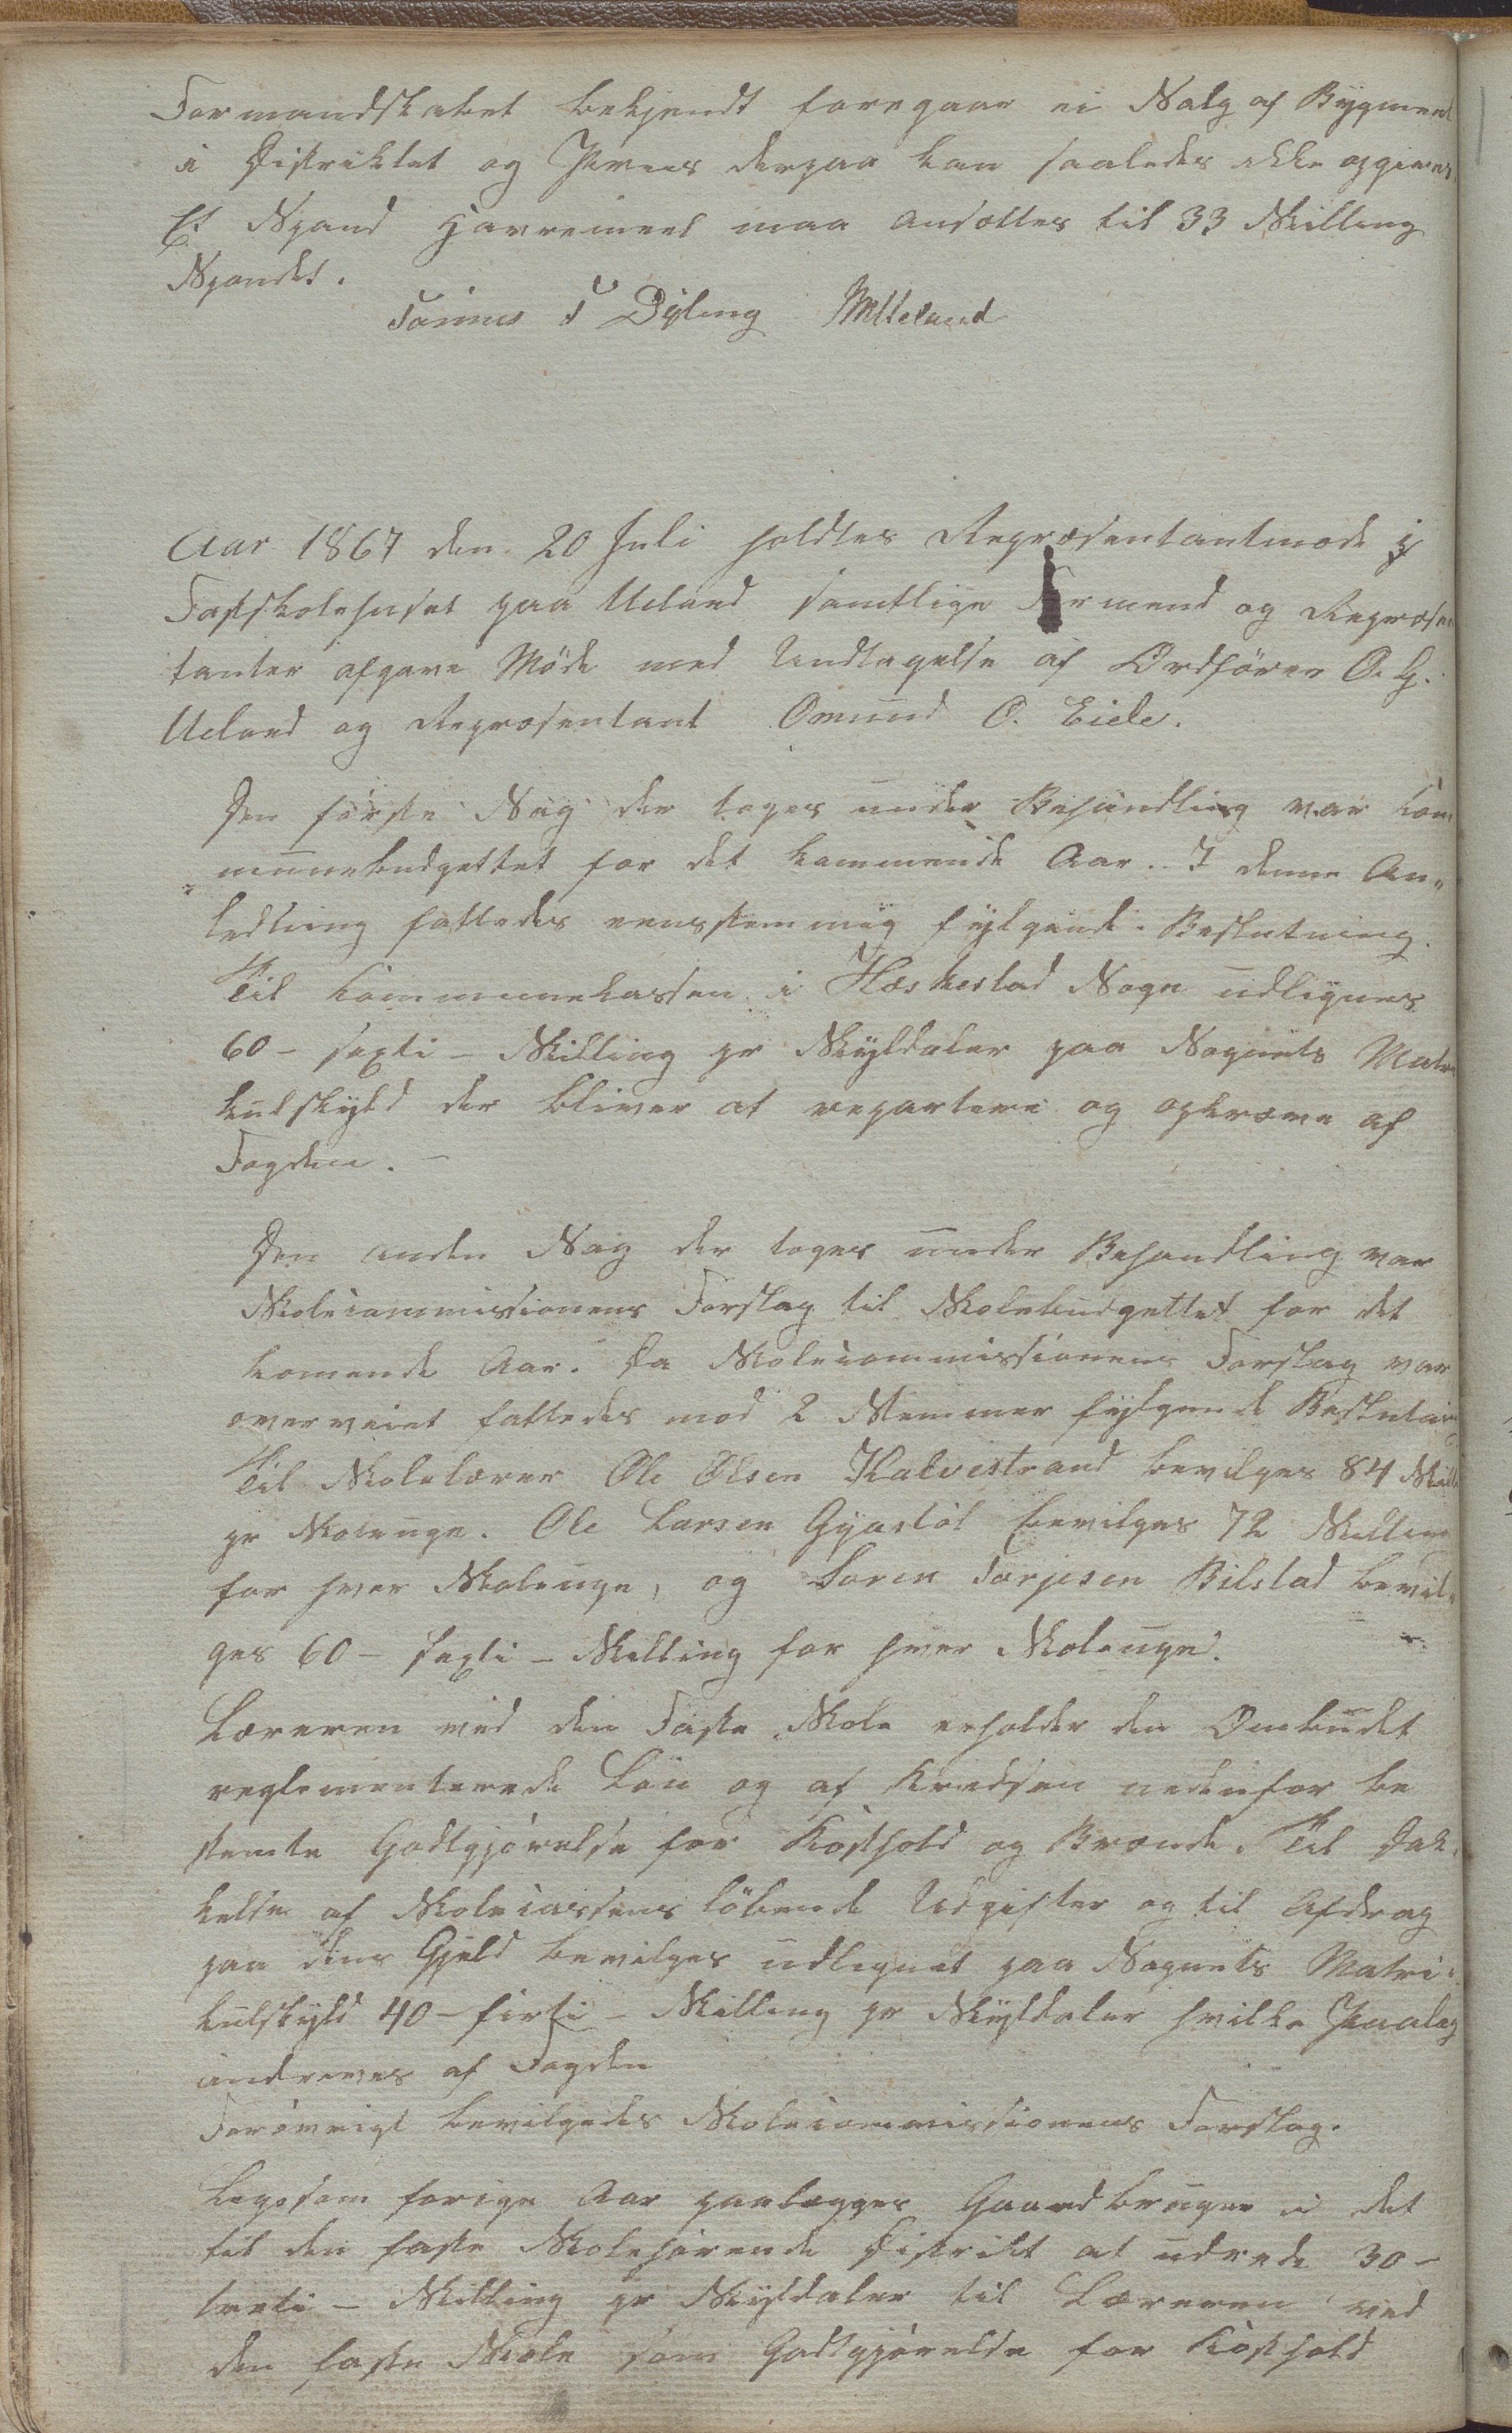 Formandskabet bekjendt foregaar ei Salg af Bygmeel
i Distriktet og Priis derpaa kan saaledes ikke opgives.
Et Spand Havremeel maa ansættes til 33 Skilling
Spandet.
Tønnes T Dyling MUeland
Aar 1867 den 20 Juli holdtes Repræsentantmøde i
Fastskolehuset paa Ueland samtlige Formænd og Repræsen
tanter afgave Møde med Undtagelse af Ordfører O. G.
Ueland og Repræsentant Omund O. Eide.
Den første Sag der toges under Behandling var Kom
munebudgettet for det kommende Aar. I denne An-
ledning fattedes eenstemmig følgende Beslutning.
Til Kommunekassen i Heskestad Sogn udlignes
60 - sexti - Skilling pr Skylddaler paa Sognets Matri
kulskyld der bliver at repartere og opkræve af
Fogden. -
Den anden Sag der toges under Behandling var
Skolecommissionens Forslag til Skolebudgettet for det
komende Aar. Da Skolecommissionens Forslag var
overveiet fattedes mod 2 Stemmer følgende Beslutning
Til Skolelærer Ole Olsen Kalvestrand bevilges 84 Skill
pr Skoleuge. Ole Larsen Gyastøl bevilges 72 Skilling
for hver Skoleuge, og Søren Torjesen Bilstad bevil-
ges 60 - sexti - Skilling for hver Skoleuge.
Læreren ved den Faste Skole erholder den Ombudet
reglementerede Løn og af Kredsen nedenfor be
stemte Godtgjørelse for Kosthold og Brænde. Til Dæk-
kelse af Skolecassens løbende Udgifter og til Afdrag
paa dens Gjeld bevilges udlignet paa Sognets Matri-
kulskyld 40 - firti - Skilling pr Skylddaler hvilke Paalæg
inddrives af Fogden
Forøvrigt bevilgedes Skolecommissionens Forslag.
Ligesom forige Aar paalægges Gaardbrugere i det
til den faste Skole hørende Distrikt at udrede 30 -
treti - Skilling pr Skylddaler til Læreren ved
den faste Skole som Godtgjørelse for Kosthold